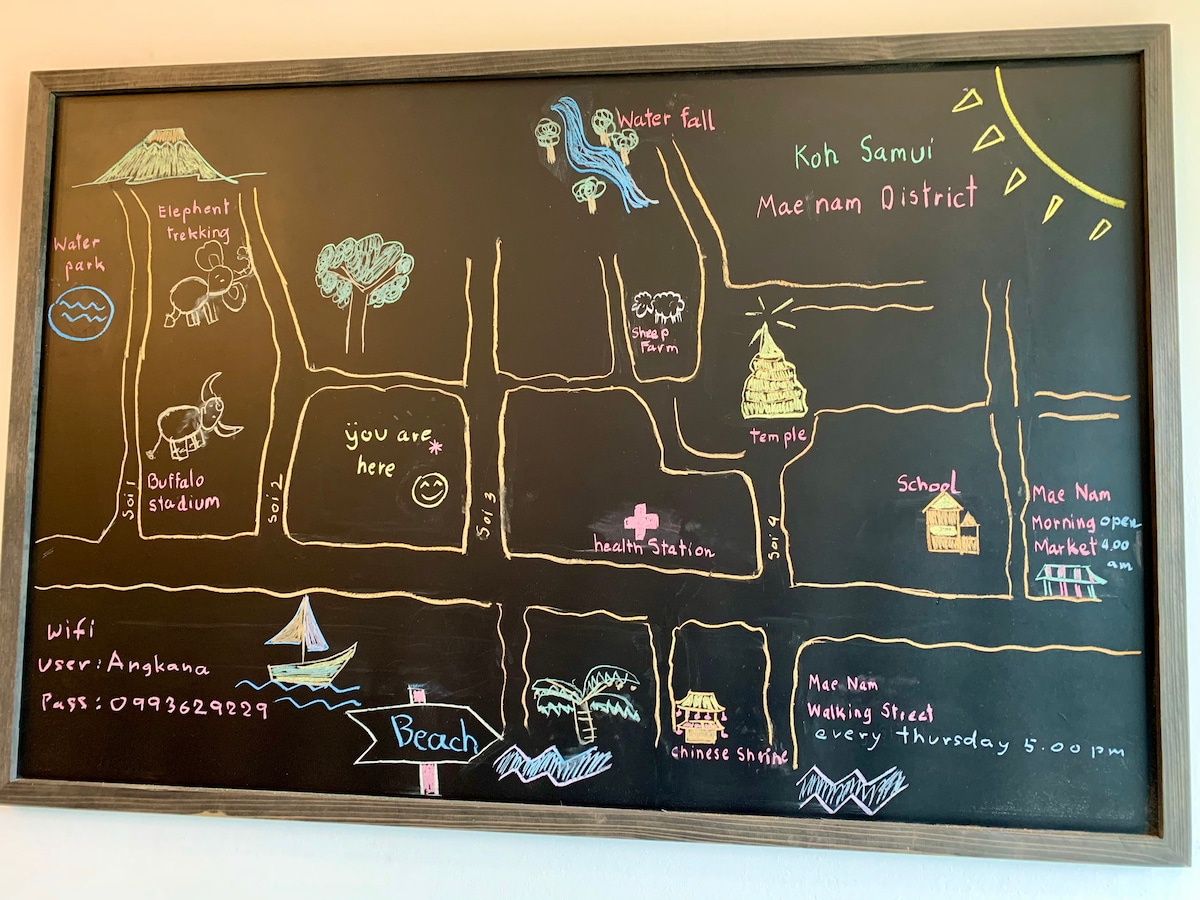 Water fall
Koh Samui
Mae nam District
Elephent
trekking
Water
park
Sheep
Farm
temple
you are
here
Buffalo
stadium
Soi 1
Soi 2
Soi 3
Soi 4
health Station
School
Mae Nam
Morning open
Market 4.00
am
Wifi
User: Angkana
Pass: 0993629229
Beach
Chinese Shrine
Mae Nam
Walking Street
every thursday 5.00 pm